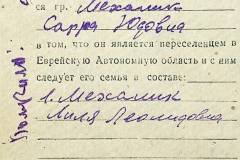 ся гр. Механик
Сарра Юдовна
в том, что он является переселенцем в
Еврейскую Автономную область и с ним
следует его семья в составе:
1. Механик
Лиля Леонидовна